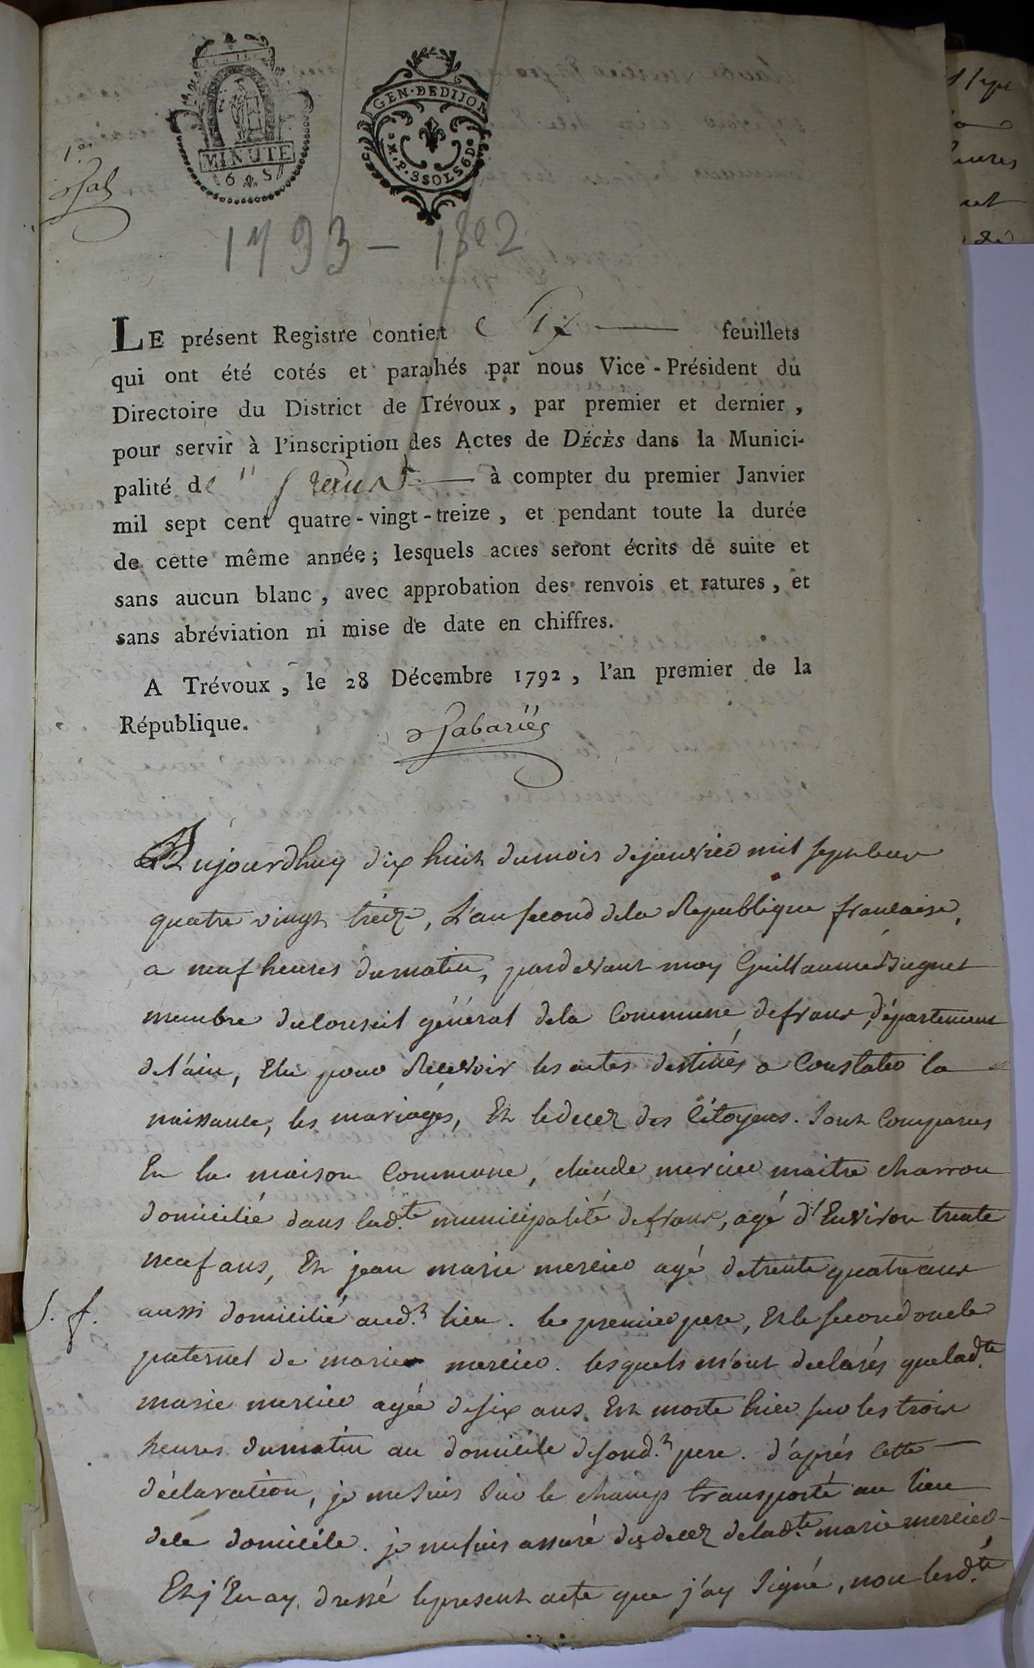 MINUTE
6 S
GEN. DE DIJON
M.P. 3 SOLS 6 D
1er
Sab
1793 – 1802
LE présent Registre contient Six feuillets
qui ont été cotés et paraphés par nous Vice-Président du
Directoire du District de Trévoux, par premier et dernier,
pour servir à l'inscription des Actes de DÉCÈS dans la Munici-
palité de frans à compter du premier Janvier
mil sept cent quatre-vingt-treize, et pendant toute la durée
de cette même année; lesquels actes seront écrits de suite et
sans aucun blanc, avec approbation des renvois et ratures, et
sans abréviation ni mise de date en chiffres.
A Trévoux, le 28 Décembre 1792, l'an premier de la
République.
Sabariés
Aujourdhuy dix huit du mois de janvier mil sept cent
quatre vingt treize, L'an second de la Republique francaise,
a neuf heures du matin, pardevant moy Guillaume Buguet
membre du conseil général de la Commune de frans, département
de l'ain, Elu pour Recevoir les actes destinés a Constater la
naissance, les mariages, Et le decez des Citoyens. Sont Comparus
En la maison Commune, claude mercier maitre charron
domicilié dans lad.te municipalité de frans, agé d'Environ trente
neuf ans, Et jean marie mercier agé de trente quatre ans
aussi domicilié aud.t lieu. le premier pere, Et le second oncle
S. f.
paternel de marie mercier. lesquels m'ont declarés que lad.te
marie mercier agée de six ans Est morte hier sur les trois
heures du matin au domicile de sond.t pere. d'aprés cette
déclaration, je me suis sur le champ transporté au lieu
de ce domicile. je me suis assuré du decez de lad.te marie mercier
Et j'En ay dressé le present acte que j'ay Signé, non lesd.ts